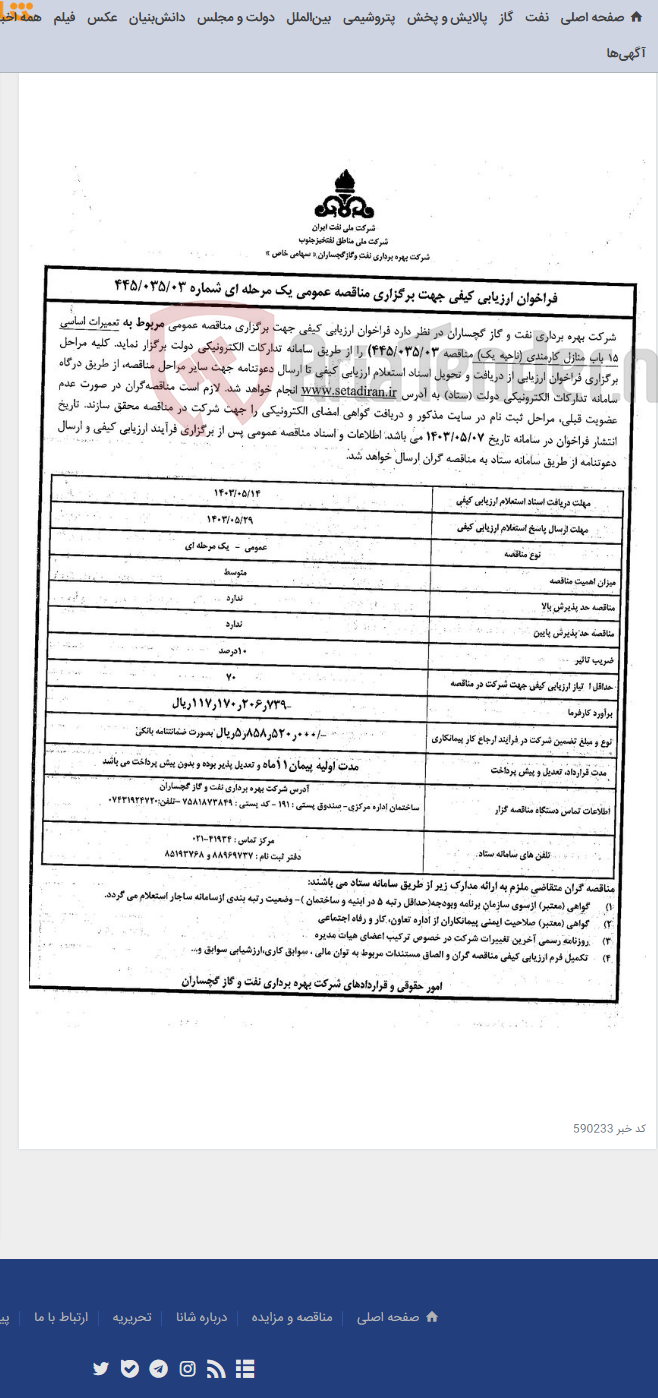 صفحه اصلی نفت گاز پالایش و پخش پتروشیمی بین‌الملل دولت و مجلس دانش‌بنیان عکس فیلم همه
آگهی‌ها
شرکت ملی نفت ایران
شرکت ملی مناطق نفتخیز جنوب
شرکت بهره برداری نفت و گاز گچساران « سهامی خاص »
فراخوان ارزیابی کیفی جهت برگزاری مناقصه عمومی یک مرحله ای شماره ۴۴۵/۰۳۵/۰۳
شرکت بهره برداری نفت و گاز گچساران در نظر دارد فراخوان ارزیابی کیفی جهت برگزاری مناقصه عمومی مربوط به تعمیرات اساسی
۱۵ باب منازل کارمندی (ناحیه یک) مناقصه ۴۴۵/۰۳۵/۰۳) را از طریق سامانه تدارکات الکترونیکی دولت برگزار نماید. کلیه مراحل
برگزاری فراخوان ارزیابی از دریافت و تحویل اسناد استعلام ارزیابی کیفی تا ارسال دعوتنامه جهت سایر مراحل مناقصه، از طریق درگاه
سامانه تدارکات الکترونیکی دولت (ستاد) به آدرس www.setadiran.ir انجام خواهد شد. لازم است مناقصه‌گران در صورت عدم
عضویت قبلی، مراحل ثبت نام در سایت مذکور و دریافت گواهی امضای الکترونیکی را جهت شرکت در مناقصه محقق سازند. تاریخ
انتشار فراخوان در سامانه تاریخ ۱۴۰۳/۰۵/۰۷ می باشد. اطلاعات و اسناد مناقصه عمومی پس از برگزاری فرآیند ارزیابی کیفی و ارسال
دعوتنامه از طریق سامانه ستاد به مناقصه گران ارسال خواهد شد.
مهلت دریافت اسناد استعلام ارزیابی کیفی ۱۴۰۳/۰۵/۱۴
مهلت ارسال پاسخ استعلام ارزیابی کیفی ۱۴۰۳/۰۵/۲۹
نوع مناقصه عمومی - یک مرحله ای
میزان اهمیت مناقصه متوسط
مناقصه حد پذیرش بالا ندارد
مناقصه حد پذیرش پایین ندارد
ضریب تاثیر ۱۰درصد
حداقل ا تیاز ارزیابی کیفی جهت شرکت در مناقصه ۷۰
برآورد کارفرما ۱۱۷٫۱۷۰٫۲۰۶٫۷۳۹-ریال
نوع و مبلغ تضمین شرکت در فرآیند ارجاع کار پیمانکاری ۵٫۸۵۸٫۵۲۰٫۰۰۰/-ریال بصورت ضمانتنامه بانکی
مدت قرارداد، تعدیل و پیش پرداخت مدت اولیه پیمان ۱۱ماه و تعدیل پذیر بوده و بدون پیش پرداخت می باشد
اطلاعات تماس دستگاه مناقصه گزار آدرس شرکت بهره برداری نفت و گاز گچساران
ساختمان اداره مرکزی- صندوق پستی : ۱۹۱ - کد پستی : ۷۵۸۱۸۷۳۸۴۹ -تلفن:۰۷۴۳۱۹۲۴۷۲۰
تلفن های سامانه ستاد. مرکز تماس : ۴۱۹۳۴-۰۲۱
دفتر ثبت نام : ۸۸۹۶۹۷۳۷ و ۸۵۱۹۳۷۶۸
مناقصه گران متقاضی ملزم به ارائه مدارک زیر از طریق سامانه ستاد می باشند:
۱) گواهی (معتبر) ازسوی سازمان برنامه وبودجه(حداقل رتبه ۵ در ابنیه و ساختمان )- وضعیت رتبه بندی ازسامانه ساجار استعلام می گردد.
۲) گواهی (معتبر) صلاحیت ایمنی پیمانکاران از اداره تعاون، کار و رفاه اجتماعی
۳) روزنامه رسمی آخرین تغییرات شرکت در خصوص ترکیب اعضای هیات مدیره
۴) تکمیل فرم ارزیابی کیفی مناقصه گران و الصاق مستندات مربوط به توان مالی ، سوابق کاری،ارزشیابی سوابق و...
امور حقوقی و قراردادهای شرکت بهره برداری نفت و گاز گچساران
کد خبر 590233
صفحه اصلی مناقصه و مزایده درباره شانا تحریریه ارتباط با ما